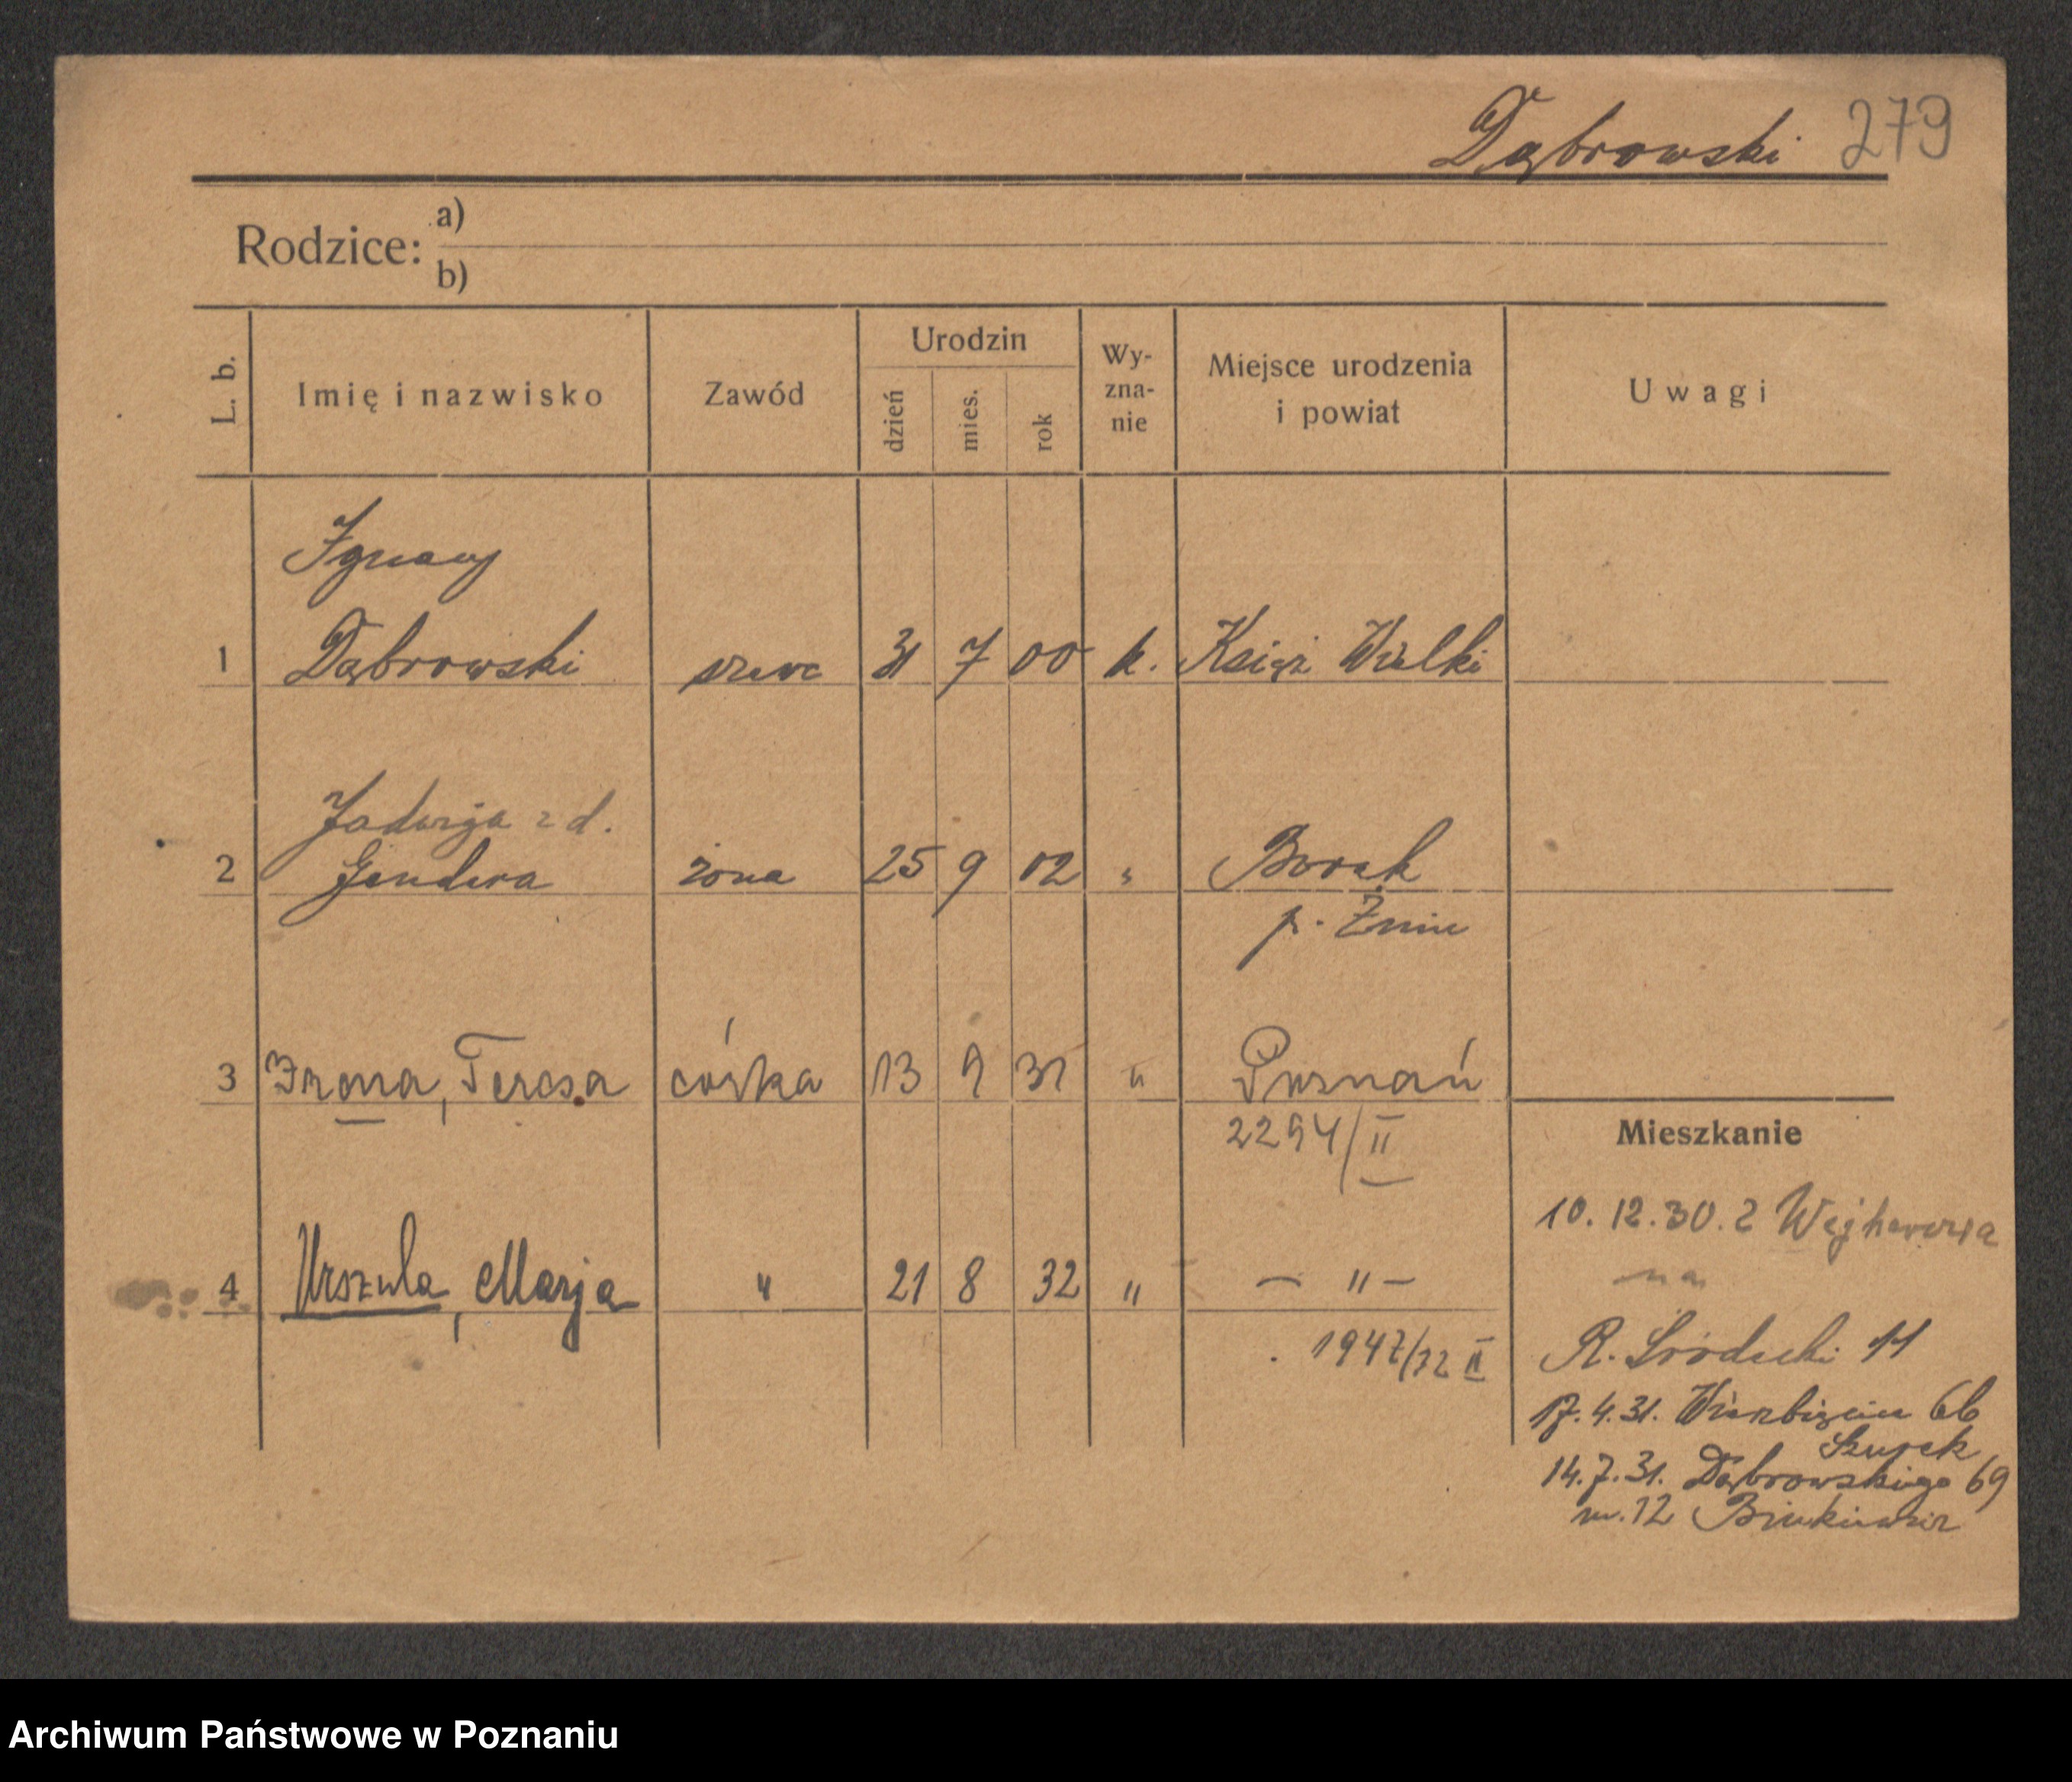 Dąbrowski 279
Rodzice: a)
b)
L. b. Imię i nazwisko Zawód Urodzin dzień mies. rok Wy-zna-nie Miejsce urodzenia i powiat Uwagi
Ignacy
1 Dąbrowski szewc 31 7 00 k. Książ Wielki
Jadwiga z d.
2 Gendera żona 25 9 02 " Borek
p. Żnin
3 Irena, Teresa córka 13 9 31 " Poznań
2294/II
Mieszkanie
10.12.30. z Wejherowa
na
4 Urszula, Marja " 21 8 32 " — " —
1947/32 II
R. Śródecki 11
17.4.31. Wierzbięcice 6b
Szurek
14.7.31. Dąbrowskiego 69
m. 12
Archiwum Państwowe w Poznaniu